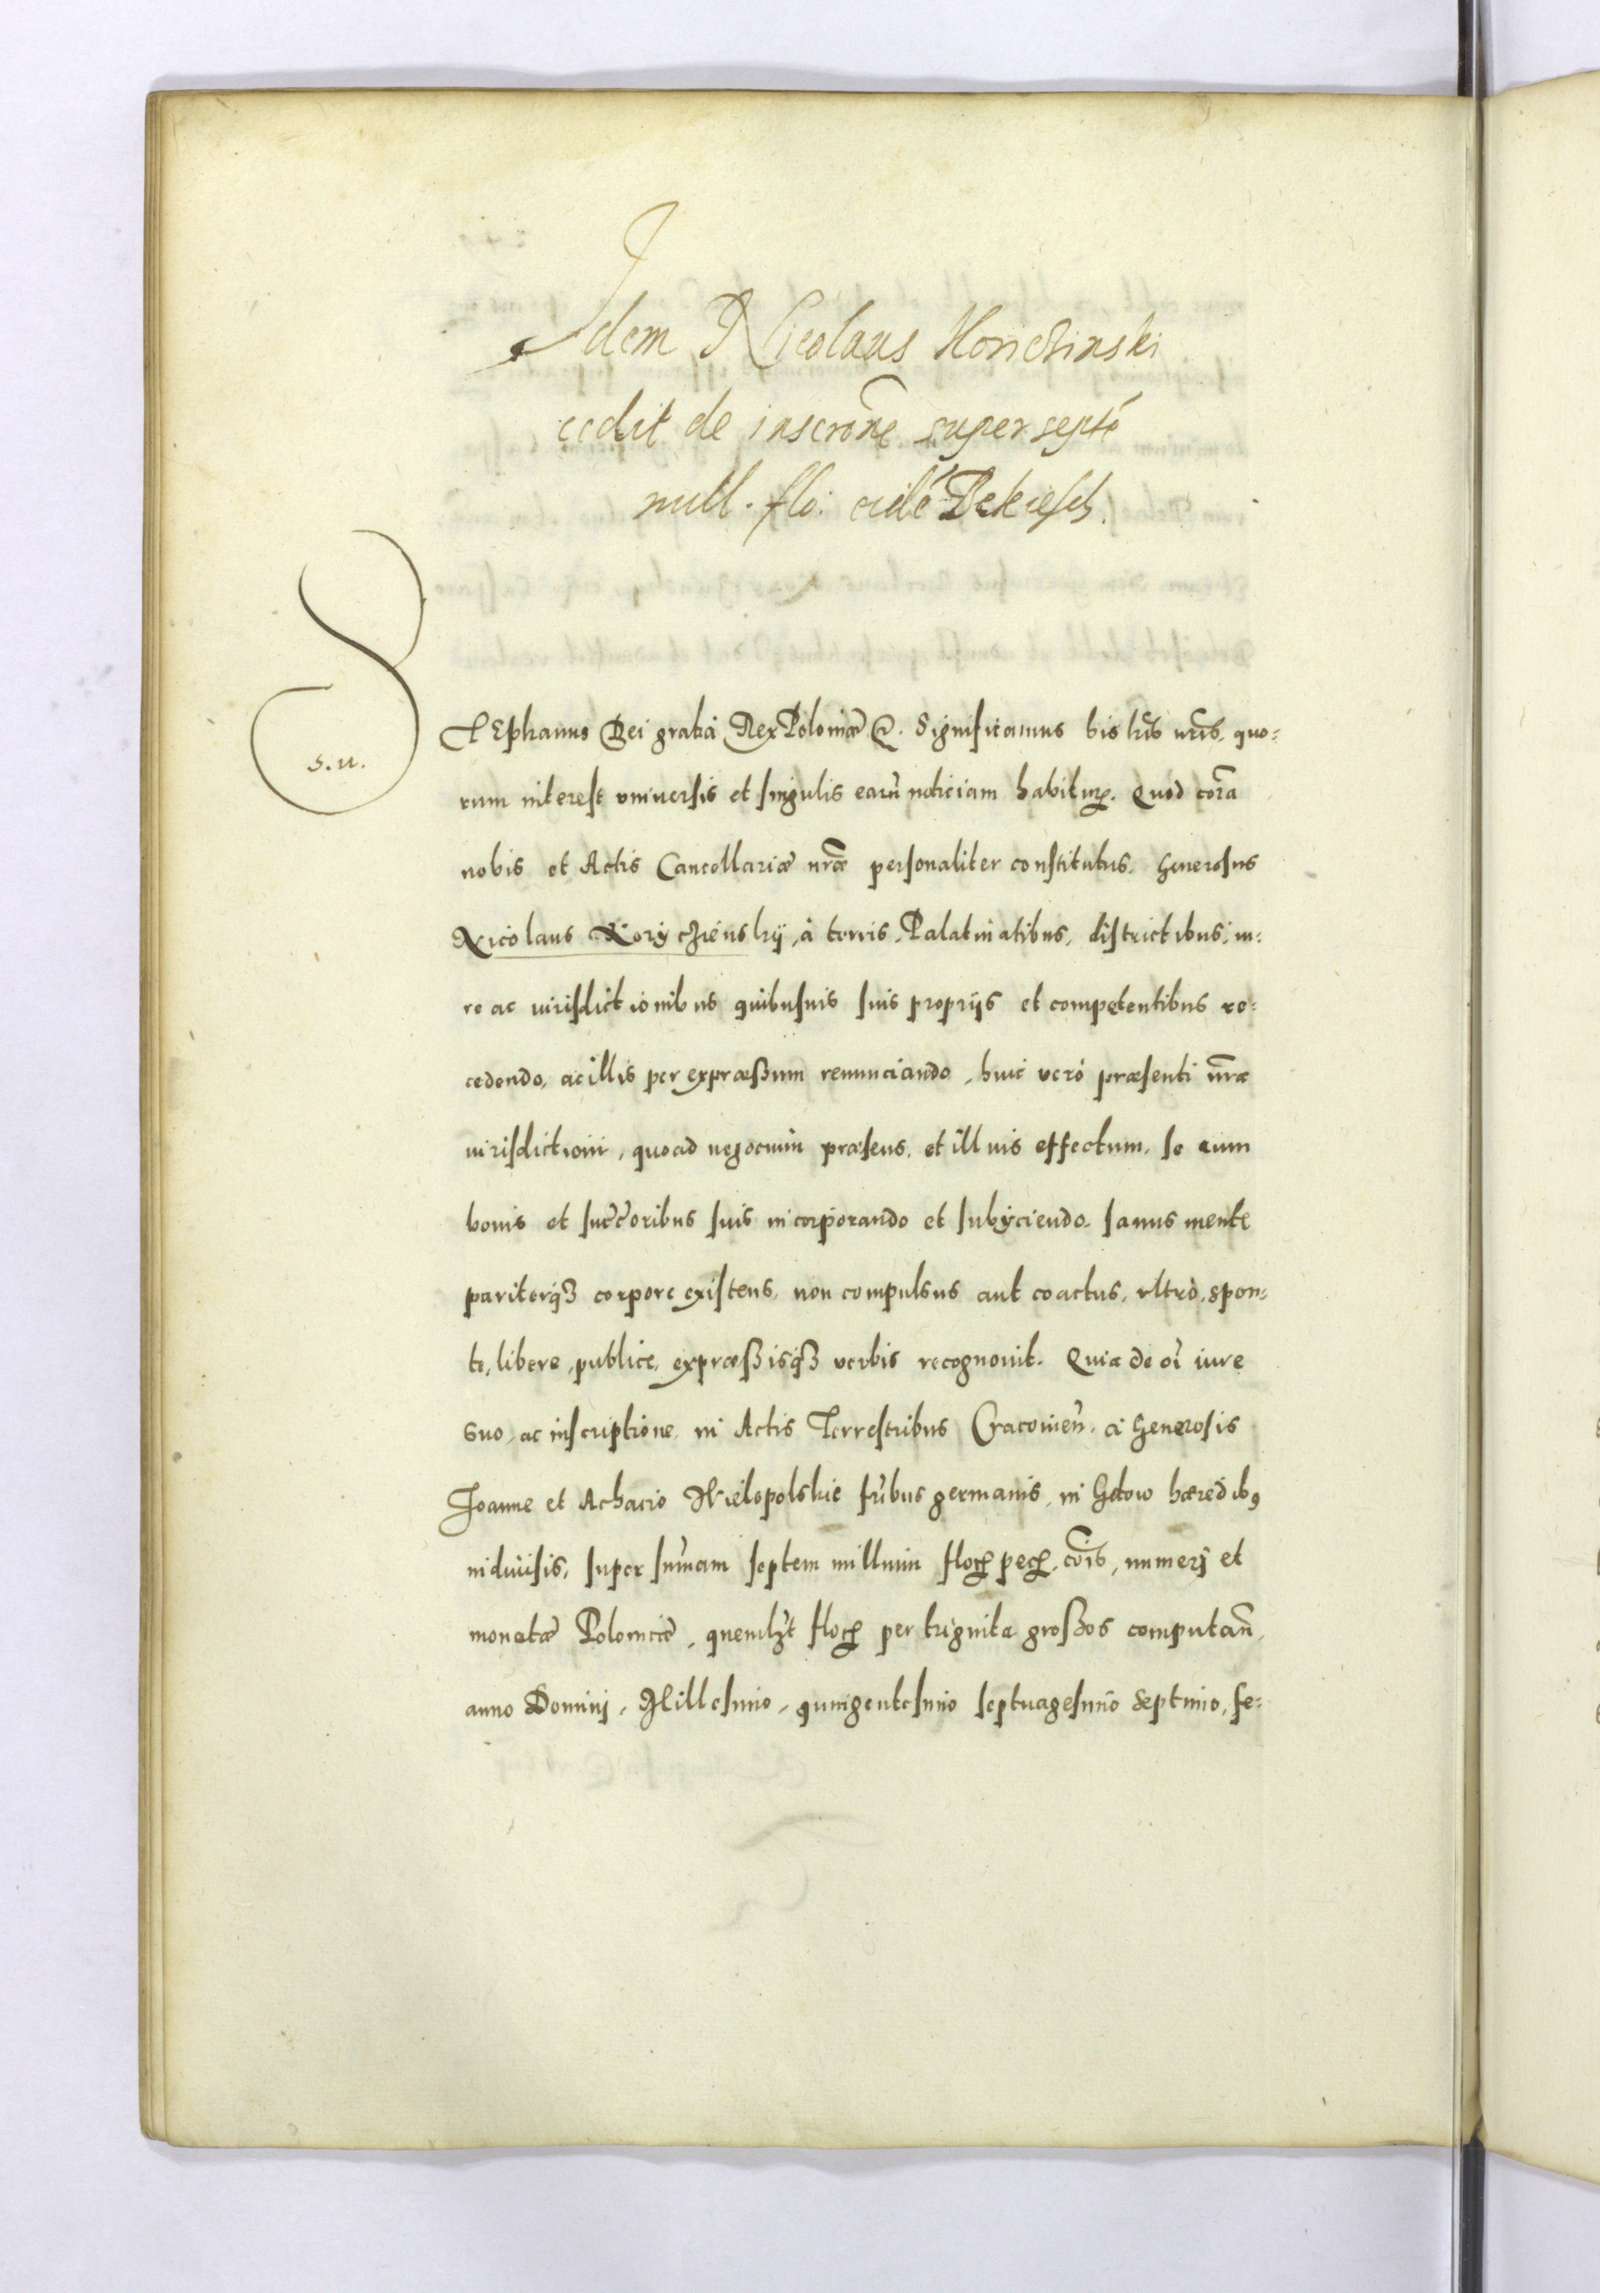 Idem Nicolaus Koricžinski
cedit de inscrōne super septē
mill. flo. eidē Bekiesch.
s. n.
STEphanus Dei gratia Rex Poloniæ &. Significamus his lrīs nrīs, quo=
rum interest vniuersis et singulis earū noticiam habiturꝫ. Quod corā
nobis et Actis Cancellariæ nrāe personaliter constitutus, Generosus
Nicolaus Koryczienskij, à terris, Palatinatibus, districtibus, iu=
re ac iurisdictionibus quibusuis suis proprijs et competentibus re=
cedendo, ac illis per expræßum renunciando, huic verò præsenti nrāe
iurisdictioni, quoad negocium præsens, et illius effectum, se cum
bonis et succōribus suis incorporando et subijciendo, sanus mente
pariterqꝫ corpore existens, non compulsus aut coactus, vltrò, spon=
te, libere, publice, expræßisqꝫ verbis recognouit. Quia de oī iure
suo, ac inscriptione, in Actis Terrestribus Cracouień. à Generosis
Joanne et Achacio Wielopolskie frībus germanis, in Gdow hæredibꝰ
indiuisis, super sum̄am septem millium florꝫ pecꝫ. cōīs, numerj et
monetæ Polonicæ, quemlꝫt florꝫ per triginta großos computań,
anno Dominj, Millesimo, quingentesimo septuagesimo septimo, fe=